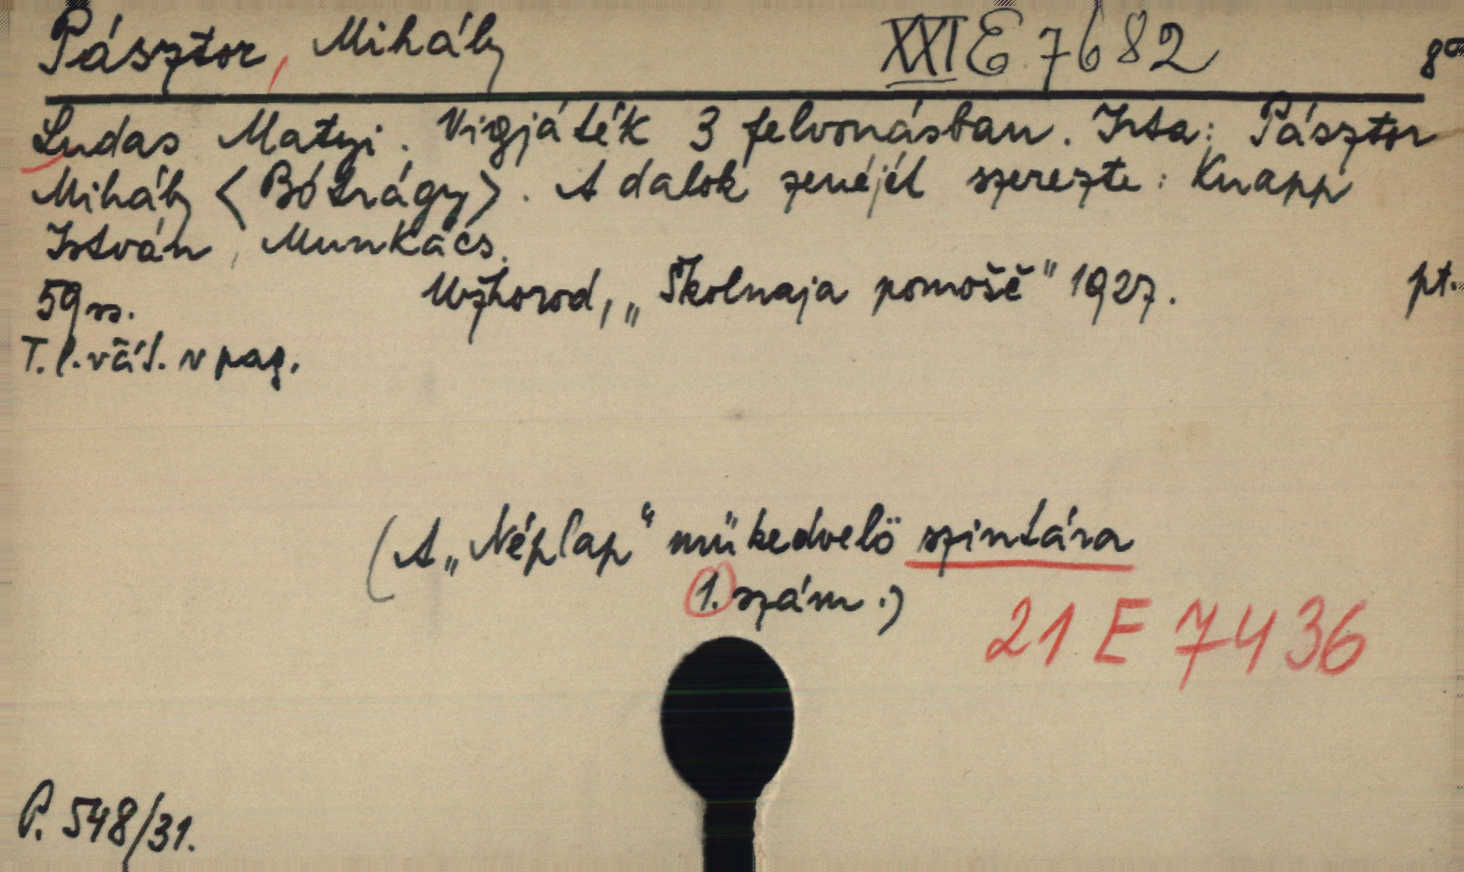 Pásztor, Mihály XXI E 7682 8°
Ludas Matyi. Vigjáték 3 felvonásban. Irta: Pásztor
Mihály <Bótrágy>. A dalok zenéjét szerezte: Knapp
István, Munkács.
59 ss. Užhorod, „Školnaja pomošč" 1927. pt.
T. l. váš. v pag.
(A „Néplap" műkedvelő szintára
1. szám.)
21 E 7436
P. 548/31.